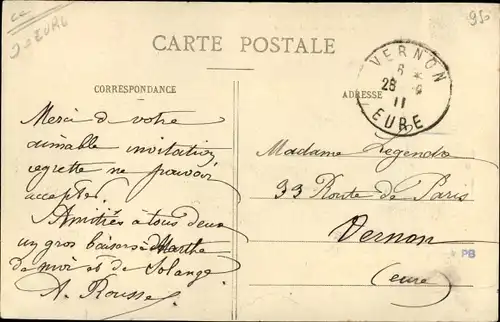 CARTE POSTALE
CORRESPONDANCE
ADRESSE
VERNON
6 *
26
11
EURE
Merci d votre
aimable invitation
regrette ne pouvoir
accepter.
Amitiés à tous deux
un gros baisers à Marthe
de moi et de Solange
A. Rousse
Madame Legendre
33 Route de Paris
Vernon
(eure)
PB
950